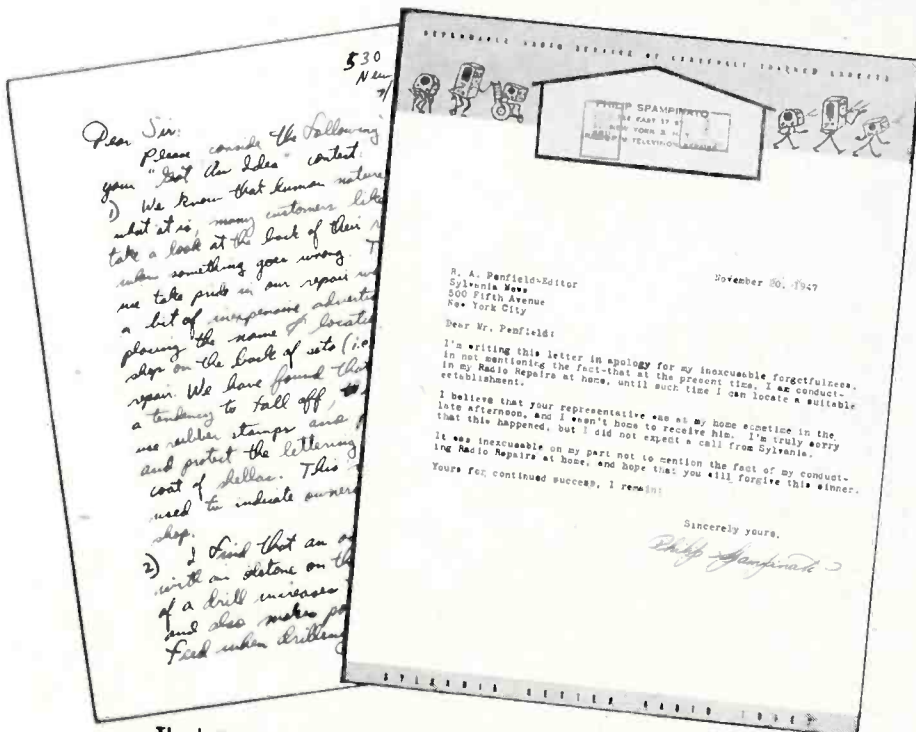 530
New
Dear Sir:
Please conside the following
your "Got An Idea" contest.
1) We know that human nature
what it is, many customers like
take a look at the back of their
when something goes wrong. T
we take pride in our repair w
a bit of inexpensive adverti
placing the name & locatio
shop on the back of sets (i.e.
repair. We have found that
a tendency to fall off, to
use rubber stamps and
and protect the lettering
coat of shellac. This
used to indicate owners
shop.
2) I find that an
with an on the
of a drill increases
and also makes po
Feed when drilling
DEPENDABLE RADIO SERVICE BY CAREFULLY TRAINED EXPERTS
PHILIP SPAMPINATO
EAST 17 ST
NEW YORK 3 N.Y.
RADIO TELEVISION REPAIRS
November 20, 1947
R. A. Penfield-Editor
Sylvania News
500 Fifth Avenue
New York City
Dear Mr. Penfield:
I'm writing this letter in apology for my inexcusable forgetfulness,
in not mentioning the fact-that at the present time, I am conduct-
in my Radio Repairs at home, until such time I can locate a suitable
establishment.
I believe that your representative was at my home sometime in the
late afternoon, and I wasn't home to receive him. I'm truly sorry
that this happened, but I did not expect a call from Sylvania.
It was inexcusable on my part not to mention the fact of my conduct-
ing Radio Repairs at home, and hope that you will forgive this sinner.
Yours for continued success, I remain:
Sincerely yours,
Philip Spampinato
SYLVANIA BETTER RADIO TUBES